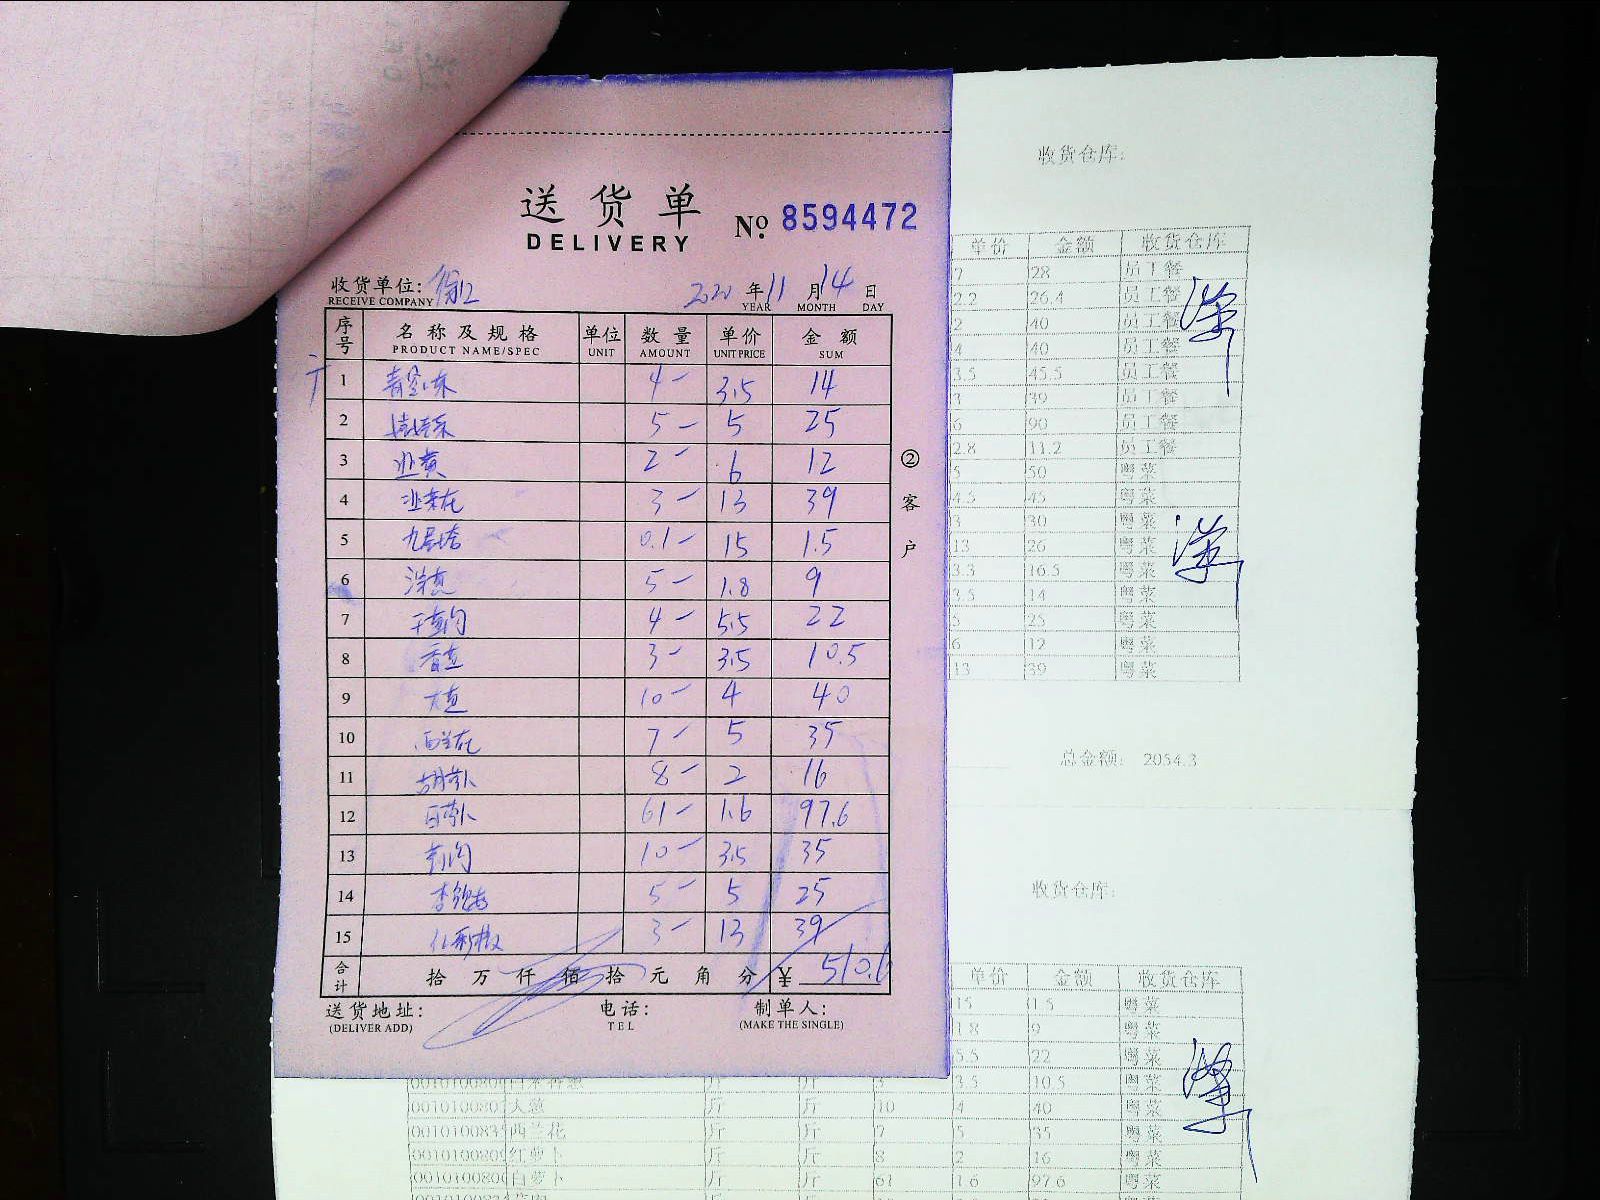 送货单
DELIVERY
No 8594472
收货单位:
RECEIVE COMPANY
2020 年 11 月 14 日
YEAR MONTH DAY
序号 名称及规格 单位 数量 单价 金额
PRODUCT NAME/SPEC UNIT AMOUNT UNIT PRICE SUM
1 4 3.5 14
2 5 5 25
3 韭黄 2 6 12
4 韭菜花 3 13 39
5 九层塔 0.1 15 1.5
6 洋葱 5 1.8 9
7 4 5.5 22
8 香葱 3 3.5 10.5
9 大葱 10 4 40
10 西兰花 7 5 35
11 胡萝卜 8 2 16
12 白萝卜 61 1.6 97.6
13 10 3.5 35
14 5 5 25
15 3 13 39
合计 拾 万 仟 佰 拾 元 角 分 ¥ 510.6
送货地址: 电话: 制单人:
(DELIVER ADD) TEL (MAKE THE SINGLE)
② 客户
收货仓库:
单价 金额 收货仓库
7 28 员工餐
2.2 26.4 员工餐
2 40 员工餐
4 40 员工餐
3.5 45.5 员工餐
3 39 员工餐
6 90 员工餐
2.8 11.2 员工餐
5 50 粤菜
4.5 45 粤菜
3 30 粤菜
13 26 粤菜
3.3 16.5 粤菜
3.5 14 粤菜
5 25 粤菜
6 12 粤菜
13 39 粤菜
总金额: 2054.3
收货仓库:
单价 金额 收货仓库
15 1.5 粤菜
1.8 9 粤菜
5.5 22 粤菜
斤 斤 3 3.5 10.5 粤菜
大葱 斤 斤 10 4 40 粤菜
西兰花 斤 斤 7 5 35 粤菜
红萝卜 斤 斤 8 2 16 粤菜
白萝卜 斤 斤 61 1.6 97.6 粤菜